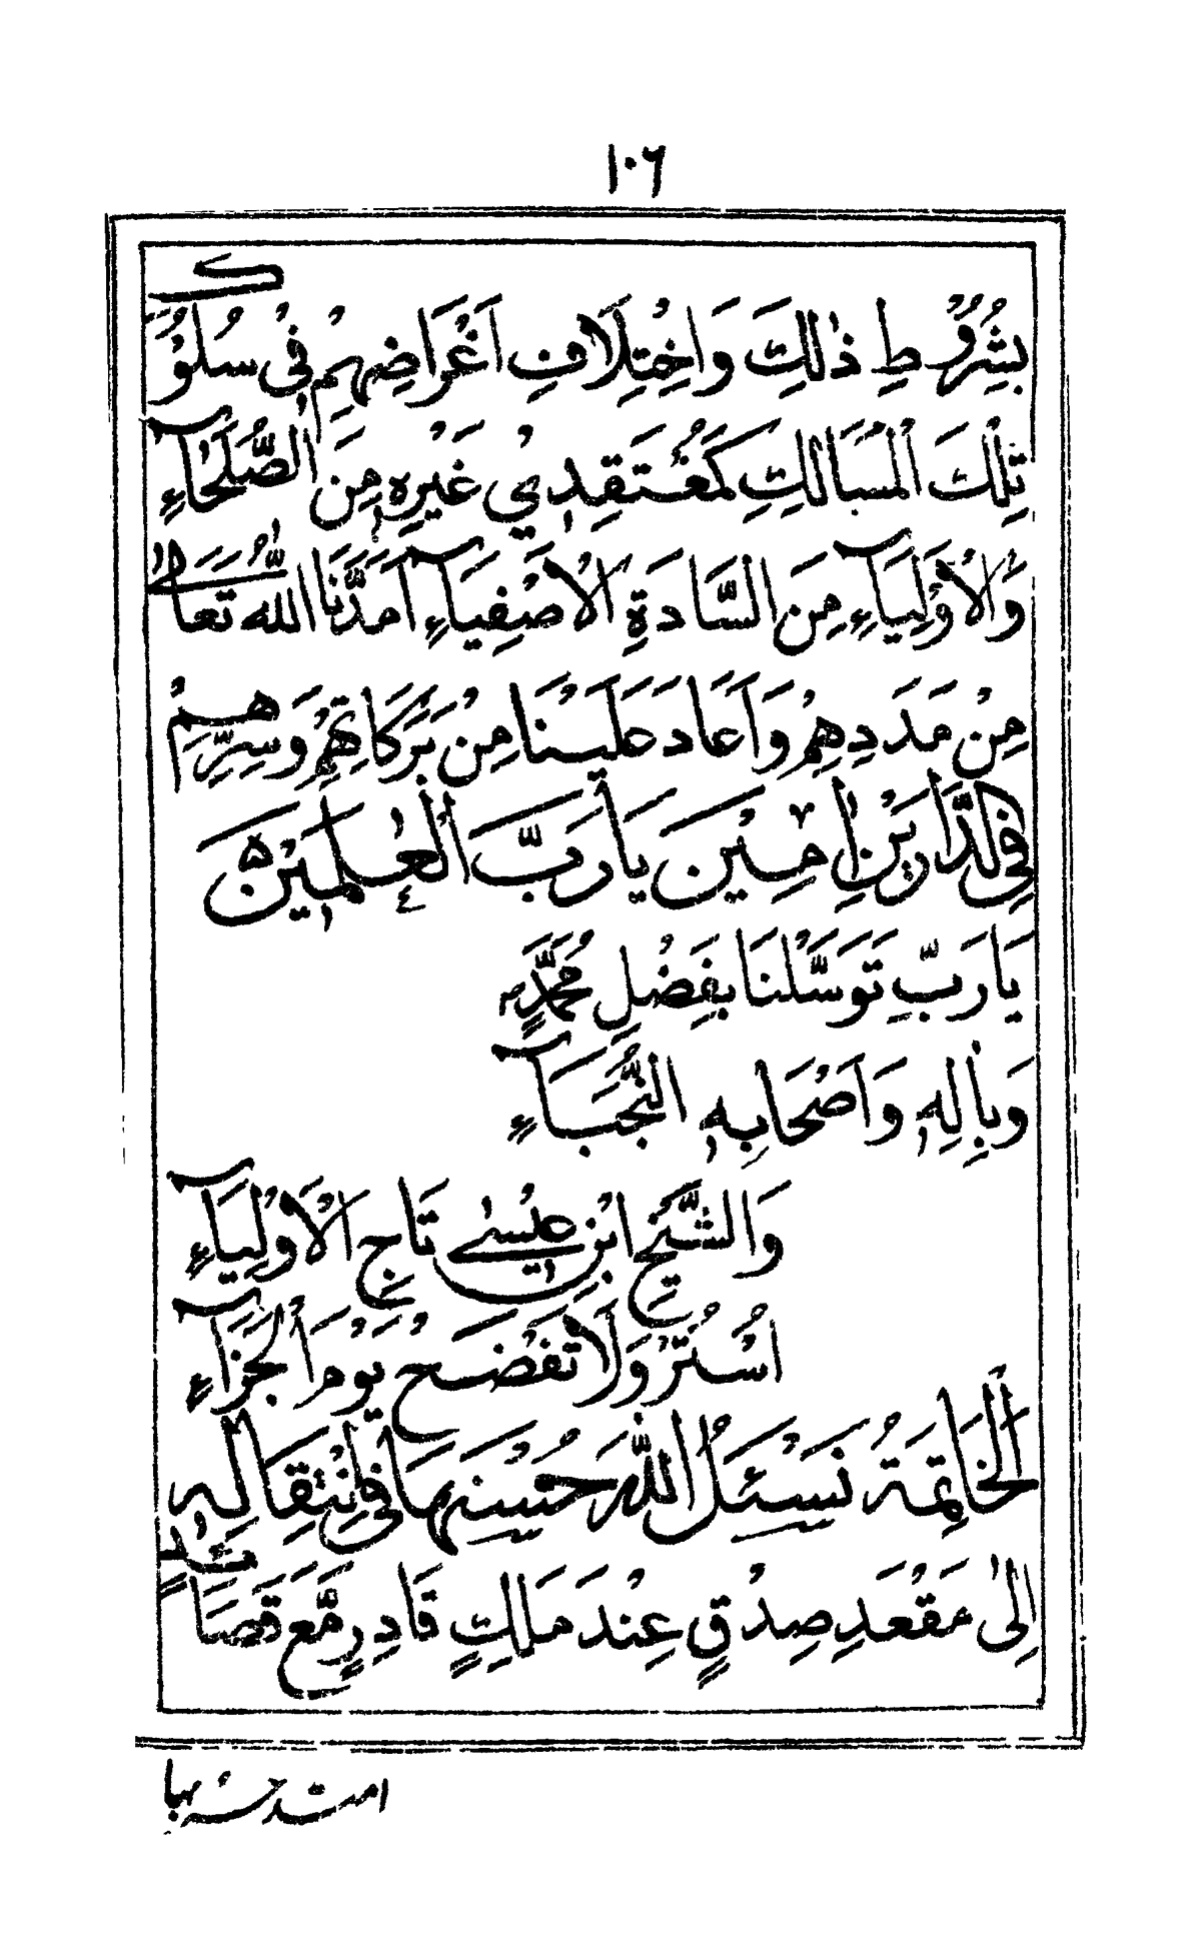 ١٠٦
بِشُرُوْطِ ذٰلِكَ وَاخْتِلَافِ اَغْرَاضِهِمْ فِيْ سُلُوْكِ
تِلْكَ الْمَسَالِكِ كَمُعْتَقِدِيْ غَيْرِهٖ مِنَ الصُّلَحَآءِ
وَالْاَوْلِيَآءِ مِنَ السَّادَةِ الْاَصْفِيَآءِ اَمَدَّنَا اللهُ تَعَالٰى
مِنْ مَدَدِهِمْ وَاَعَادَ عَلَيْنَا مِنْ بَرَكَاتِهِمْ وَسِرِّهِمْ
فِي الدَّارَيْنِ اٰمِيْنَ يَا رَبَّ الْعٰلَمِيْنَ ۵
يَا رَبِّ تَوَسَّلْنَا بِفَضْلِ مُحَمَّدٍ
وَبِاٰلِهٖ وَاَصْحَابِهِ النُّجَبَآءِ
وَالشَّيْخِ ابْنِ عِيْسٰى تَاجِ الْاَوْلِيَآءِ
اُسْتُرْ وَلَا تَفْضَحْ يَوْمَ الْجَزَآءِ
اَلْخَاتِمَةُ نَسْئَلُ اللهَ حُسْنَهَا فِي انْتِقَالِهِ
اِلٰى مَقْعَدِ صِدْقٍ عِنْدَ مَلِكٍ قَادِرٍ مَّعَ قَصَائِدٍ
امتدحه بها